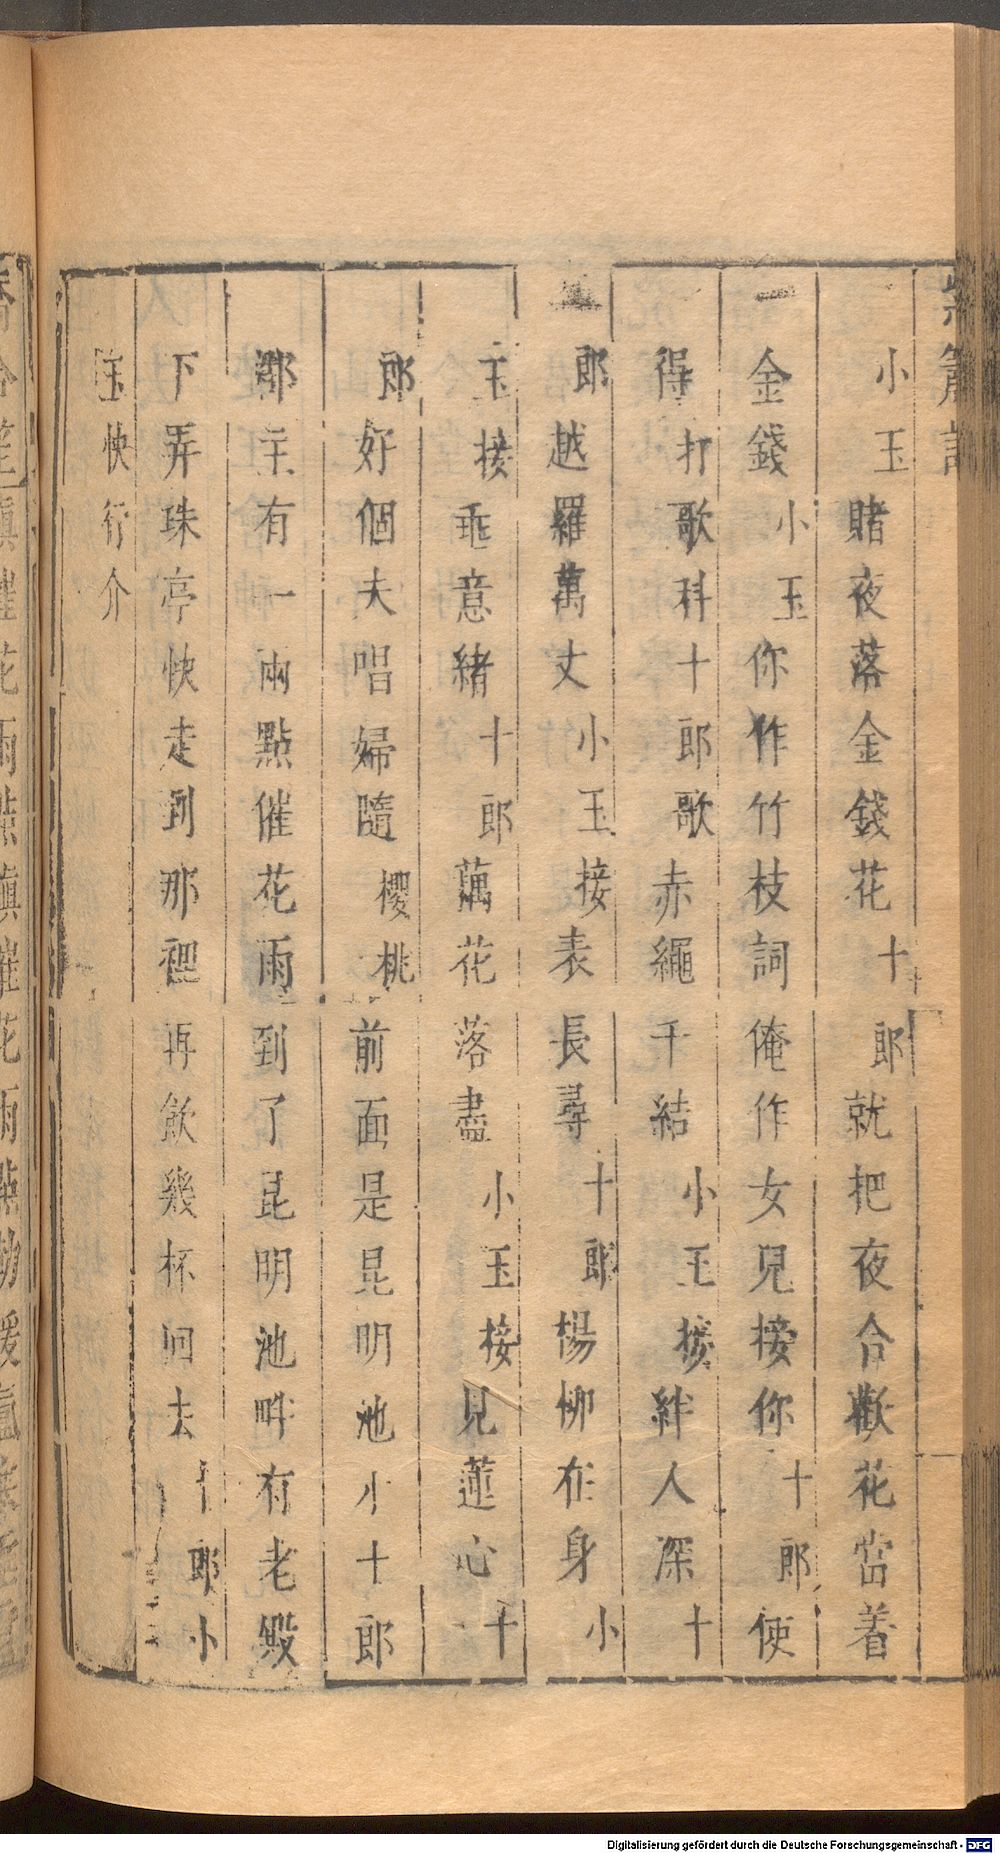 紫簫記
小玉賭夜落金錢花十郎就把夜合歡花當着
金錢小玉你作竹枝詞俺作女兒接你十郎使
得打歌科十郎歌赤繩千結小玉接絆人深十
郎越羅萬丈小玉接表長尋十郎楊柳在身小
玉接垂意緒十郎藕花落盡小玉接見蓮心十
郎好個夫唱婦隨櫻桃前面是昆明池小十郎
郡主有一兩點催花雨到了昆明池畔有老殿
下弄珠亭快走到那裡再飲幾杯回去十郎小
玉快行介
滴催花雨點滴催花雨點
Digitalisierung gefördert durch die Deutsche Forschungsgemeinschaft - DFG